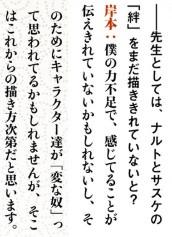 ――先生としては、ナルトとサスケの
「絆」をまだ描ききれていないと？
岸本：僕の力不足で、感じてることが
伝えきれていないかもしれないし、そ
のためにキャラクター達が「変な奴」っ
て思われてるかもしれませんが、そこ
はこれからの描き方次第だと思います。